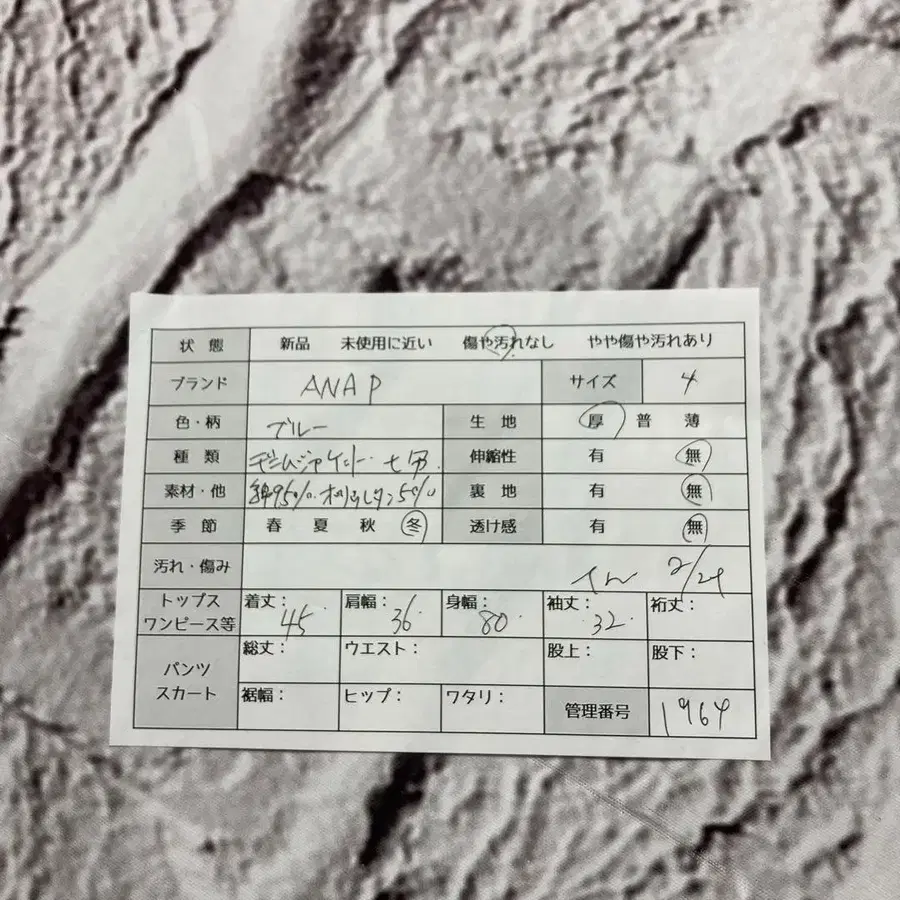 状態 新品 未使用に近い 傷や汚れなし やや傷や汚れあり
ブランド ANAP サイズ 4
色・柄 ブルー 生地 厚 普 薄
種類 デニムジャケット・七分 伸縮性 有 無
素材・他 綿95%・ポリウレタン5% 裏地 有 無
季節 春 夏 秋 冬 透け感 有 無
汚れ・傷み 2/24
トップス ワンピース等 着丈：45 肩幅：36 身幅：80 袖丈：32 裄丈：
パンツ スカート 総丈： ウエスト： 股上： 股下：
裾幅： ヒップ： ワタリ： 管理番号 1964